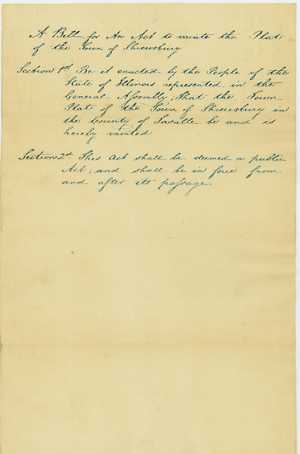 A Bill for An Act to vacate the Plat
of the Town of Shrewsbury
Section 1st Be it enacted by the People of the
State of Illinois represented in the
General Assembly, That the Town
Plat of the Town of Shrewsbury in
the County of Lasalle be and is
hereby vacated
Section 2nd This Act shall be deemed a public
Act, and shall be in force from
and after its passage